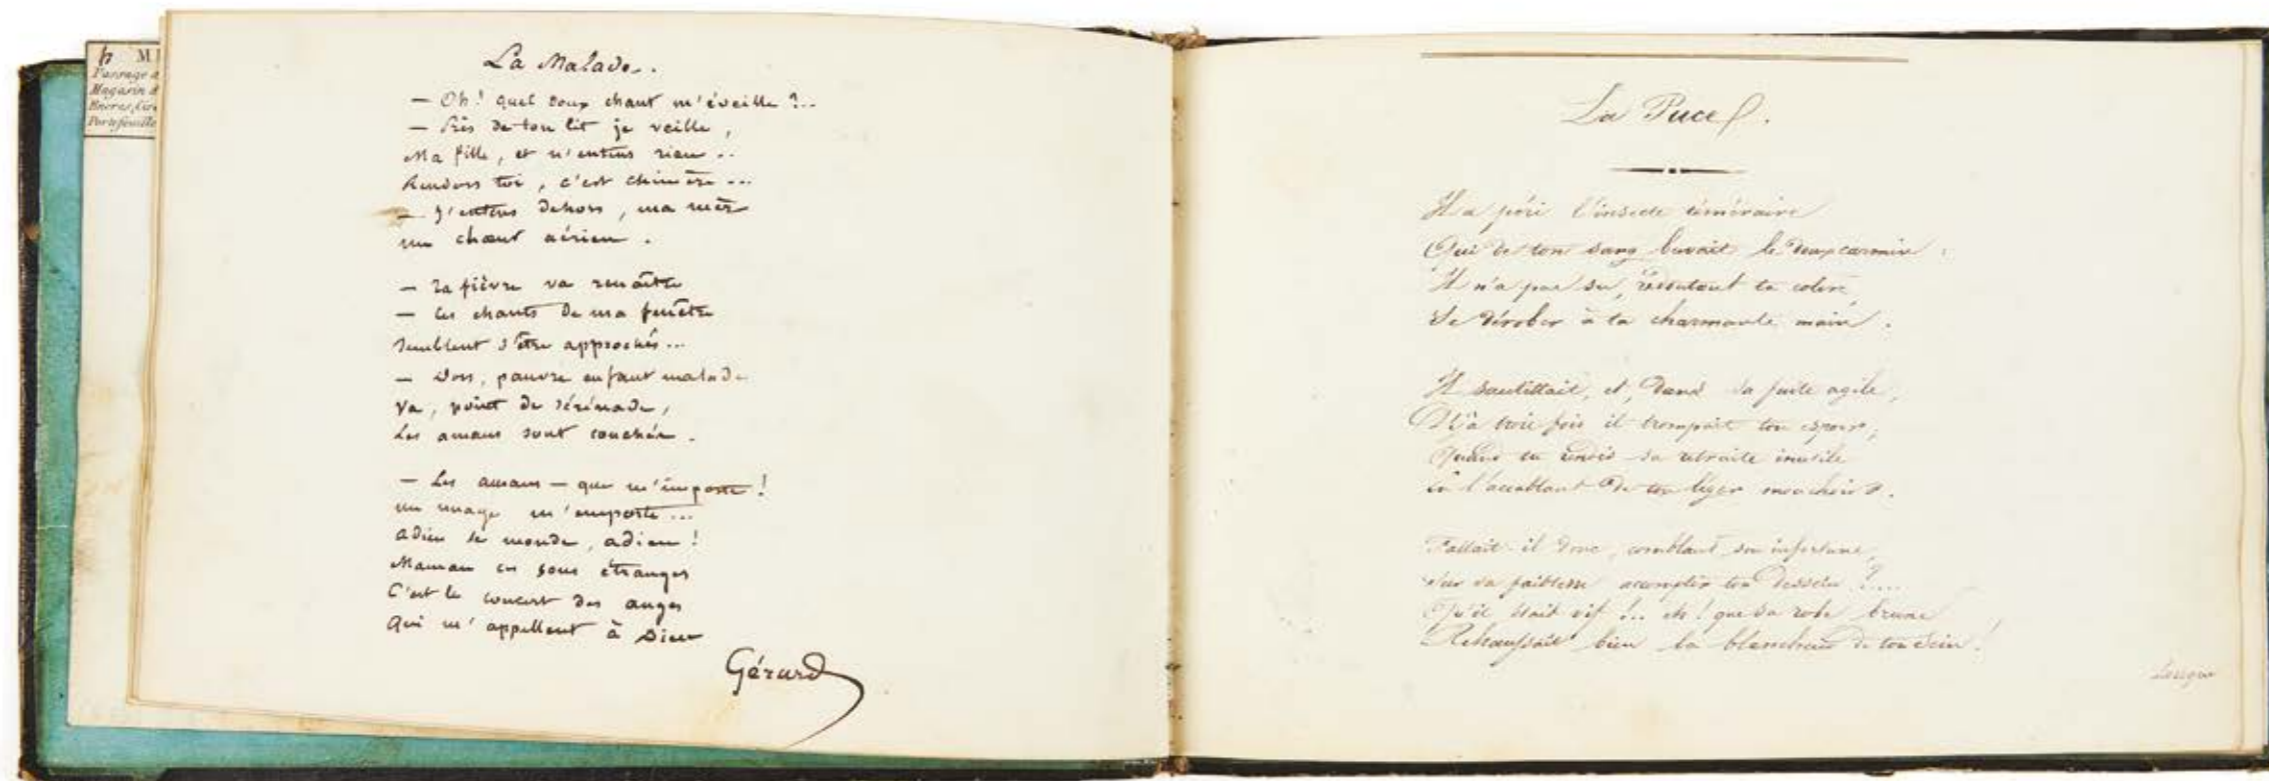 M
Passage d
Magasin d
Encres, Cire
Portefeuille
La Malade.
— Oh! quel doux chant m'éveille ?..
— Près de ton lit je veille,
Ma fille, et n'entens rien ..
Rendors toi, c'est chimère ...
— J'entens dehors, ma mère
un chœur aérien.
— Ta fièvre va renaître
— Ces chants de ma fenêtre
Semblent s'être approchés ...
— Dors, pauvre enfant malade
Va, point de sérénade,
Les amans sont couchés.
— Les amans — que m'importe !
un nuage m'emporte ...
adieu le monde, adieu !
Maman ces sons étranges
C'est le concert des anges
Qui m'appellent à Dieu
Gérard
La Puce.
Il a péri l'insecte téméraire
Qui de ton sang buvait le doux carmin :
Il n'a pas su, redoutant ta colère,
Se dérober à ta charmante main.
Il sautillait, et, dans sa fuite agile,
Déjà trois fois il trompait ton espoir,
Quand tu rendis sa retraite inutile
En l'accablant de ton léger mouchoir.
Fallait-il donc, comblant son infortune,
Sur sa faiblesse accomplir ton dessein ?....
Qu'il était vif !.. oh ! que sa robe brune
Rehaussait bien la blancheur de ton sein !